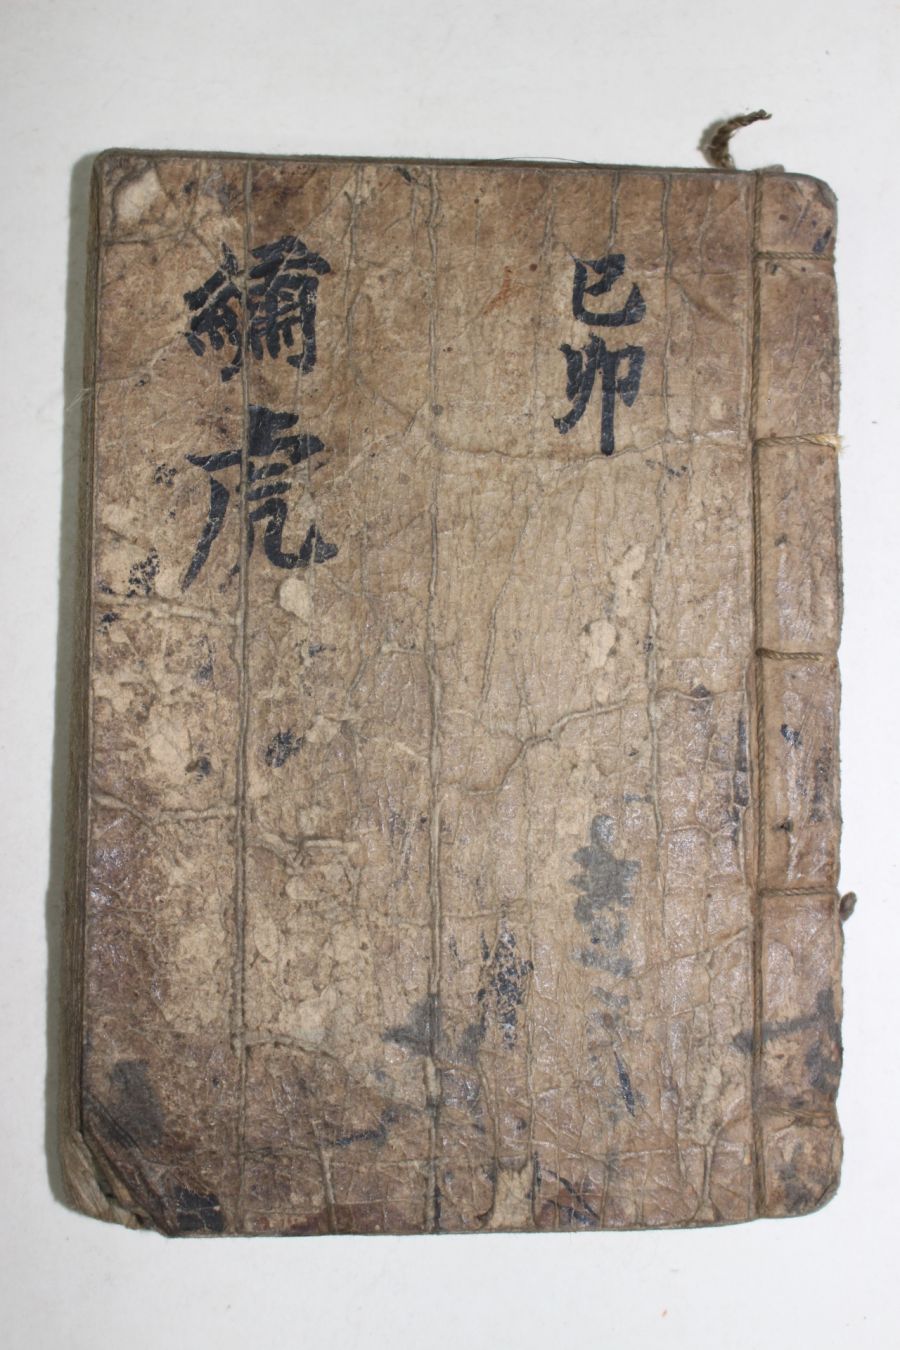 己卯
繡虎